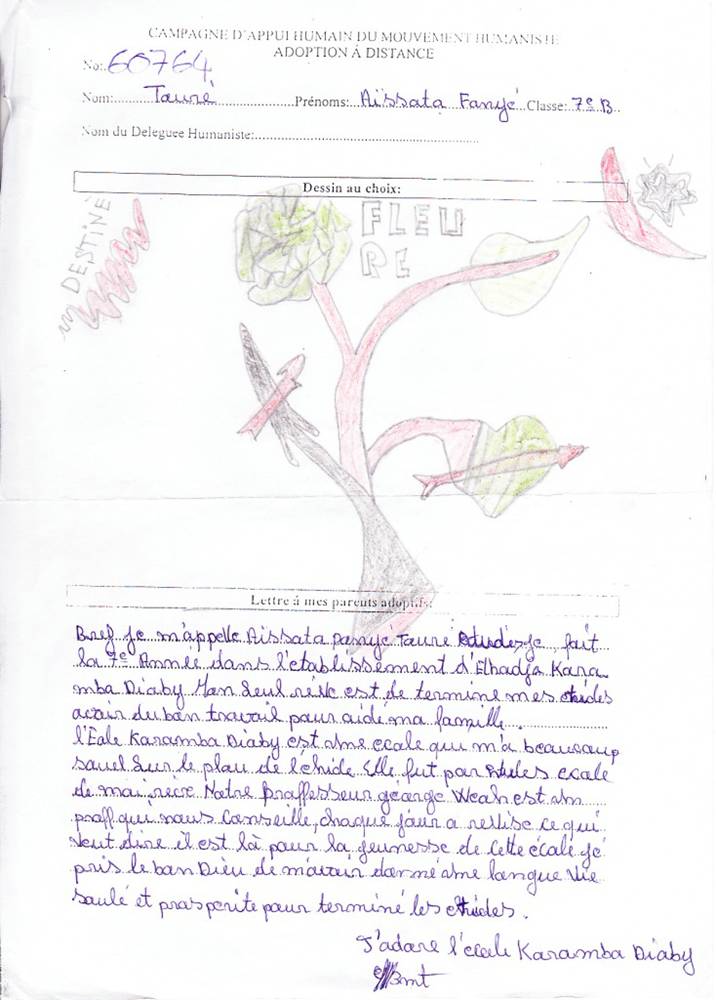 CAMPAGNE D'APPUI HUMAIN DU MOUVEMENT HUMANISTE
ADOPTION Á DISTANCE
No: 60764
Nom: Tauré Prénoms: Aïssata Fanyé Classe: 7e B
Nom du Deleguee Humaniste:
Dessin au choix:
DESTINE
FLEU
RE
Lettre á mes parents adoptifs:
Bref je m'appelle Aïssata panyé Tauré je fait
la 7e Année dans l'etablissement d'Elhadja Kara
mba Diaby Man Seul est de terminé mes etudes
avair du ban travail paur aidé ma famille
l'Eale Karamba Diaby est une ecale qui m'a beaucaup
Sur le plau de l'éhide Elle fut par ecale
de mai Natre praffesseur géarge Weah est un
praff qui naus Canseille, chaque jaur a ce qui
Veut dire il est là paur la jeunesse de Cette écale je
pris le ban Dièu de m'avair danné une langue Vie
saulé et prasperite paur terminé les etudes.
J'adare l'ecale Karamba Diaby